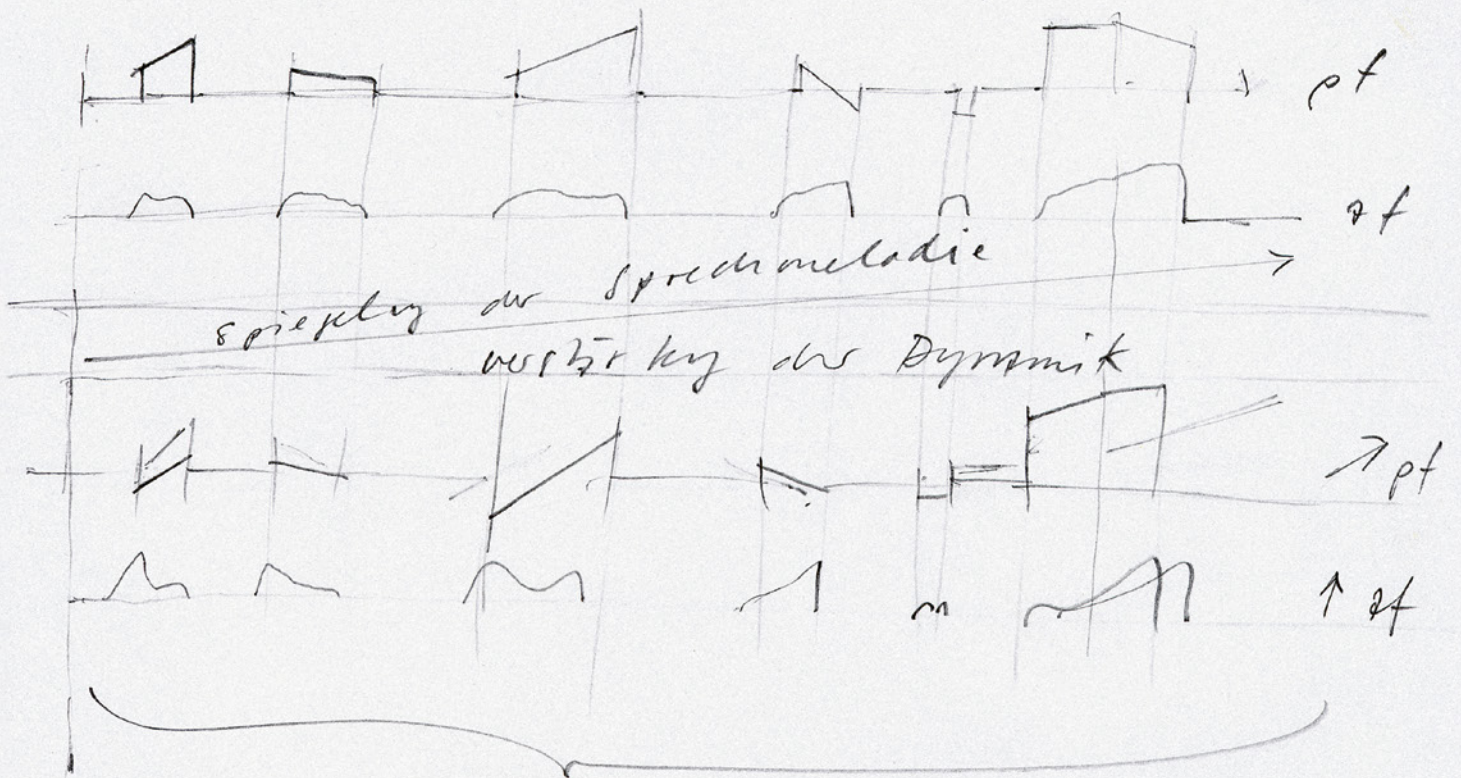 pf
af
spiegelung der Sprechmelodie
verstärkung der Dynamik
pf
af